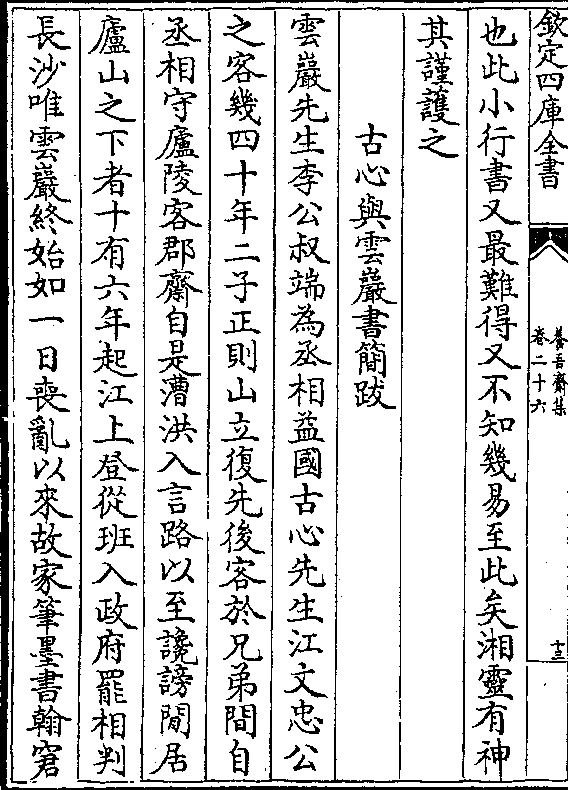 欽定四庫全書
養吾齋集
卷二十六
十三
也此小行書又最難得又不知幾易至此矣湘靈有神
其謹護之
古心與雲巖書簡跋
雲巖先生李公叔端為丞相益國古心先生江文忠公
之客幾四十年二子正則山立復先後客於兄弟間自
丞相守廬陵客郡齋自是漕洪入言路以至讒謗閒居
廬山之下者十有六年起江上登從班入政府罷相判
長沙唯雲巖終始如一日喪亂以來故家筆墨書翰窘